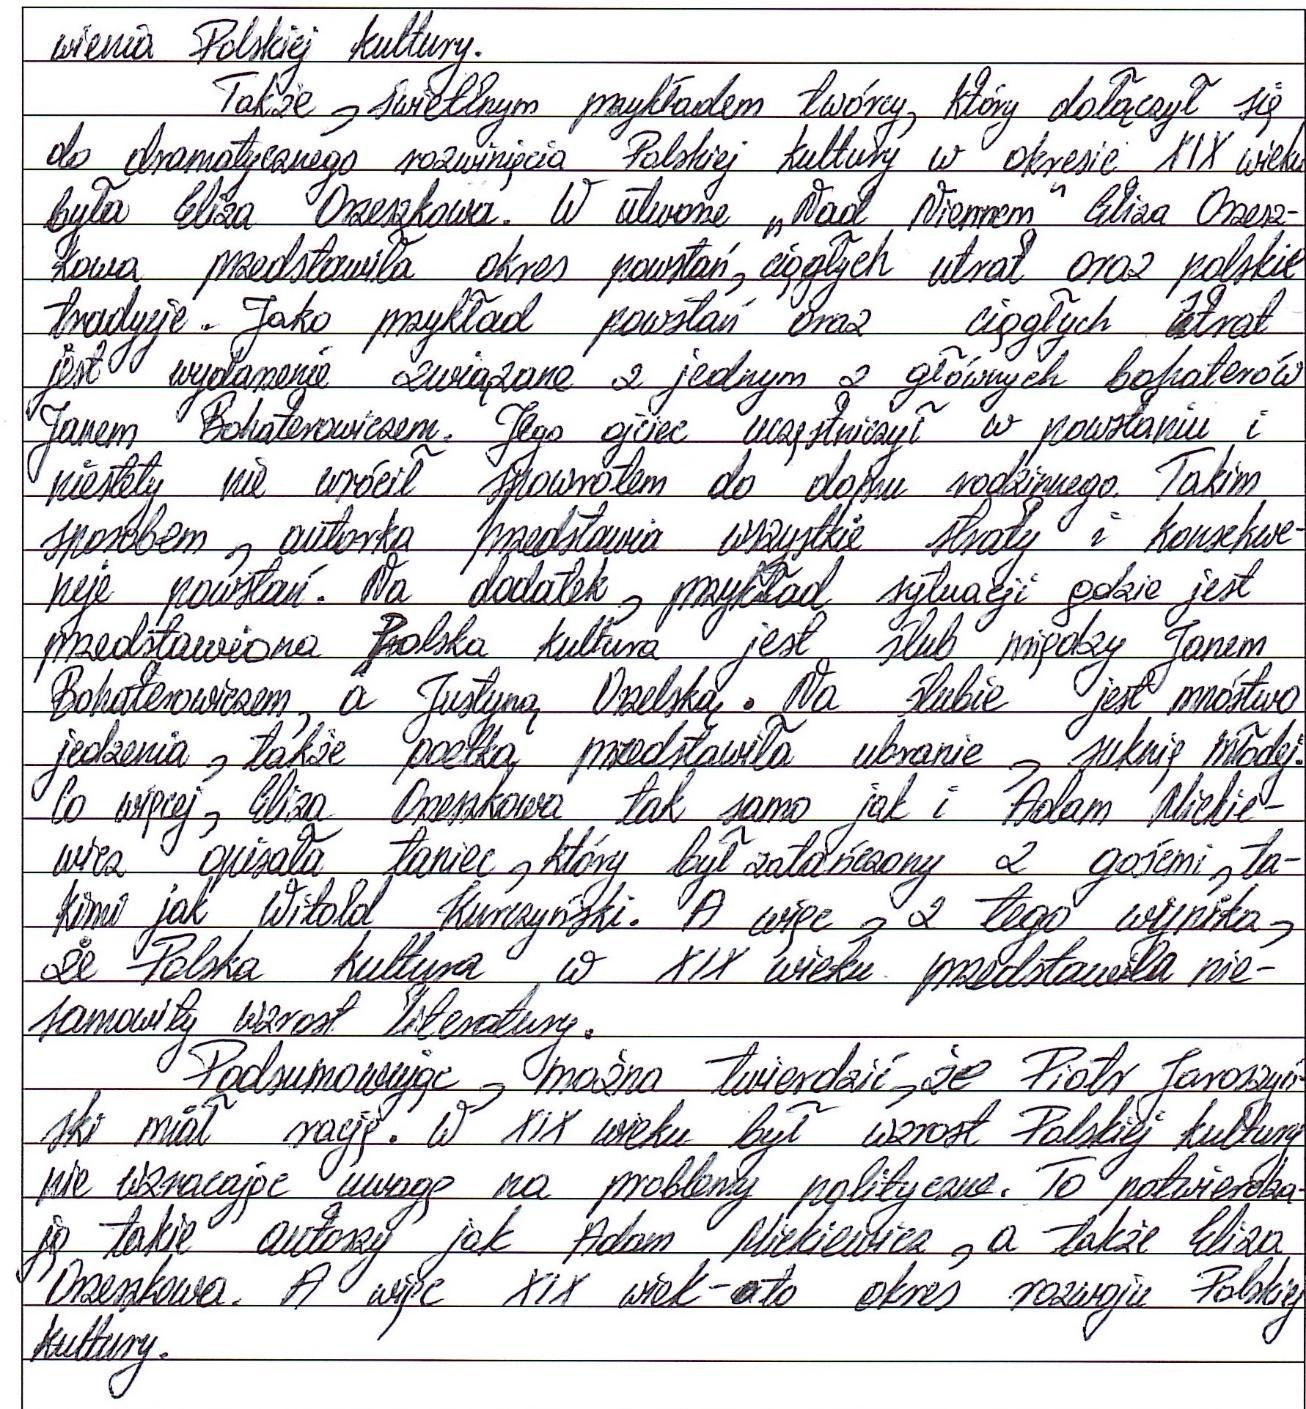 wienia Polskiej kultury.
Także, świetlnym przykładem twórcy, który dołączył się
do dramatycznego rozwinięcia Polskiej kultury w okresie XIX wieku
była Eliza Orzeszkowa. W utworze „Nad Niemnem" Eliza Orzesz-
kowa przedstawiła okres powstań, ciągłych utrat oraz polskie
tradycje. Jako przykład powstań oraz ciągłych utrat
jest wydarzenie związane z jednym z głównych bohaterów
Janem Bohaterowiczem. Jego ojciec uczęstniczył w powstaniu i
niestety nie wrócił spowrotem do domu rodzinnego. Takim
sposobem, autorka przedstawia wszystkie straty i konsekwe-
ncje powstań. Na dodatek, przykład sytuacji gdzie jest
przedstawiona Polska kultura jest ślub między Janem
Bohaterowiczem, a Justyną Orzelską. Na ślubie jest mnóstwo
jedzenia, także poetka przedstawiła ubranie, suknię młodej.
Co więcej, Eliza Orzeszkowa tak samo jak i Adam Mickie-
wicz opisała taniec, który był zatańczony z gośćmi, ta-
kimi jak Witold Kurczyński. A więc, z tego wynika,
że Polska kultura w XIX wieku przedstawiła nie-
samowity wzrost literatury.
Podsumowując, można twierdzić, że Piotr Jaroszyń-
ski miał rację. W XIX wieku był wzrost Polskiej kultury
nie wzracając uwagę na problemy polityczne. To potwierdza-
ją takie autorzy jak Adam Mickiewicz, a także Eliza
Orzeszkowa. A więc XIX wiek - to okres rozwoju Polskiej
kultury.